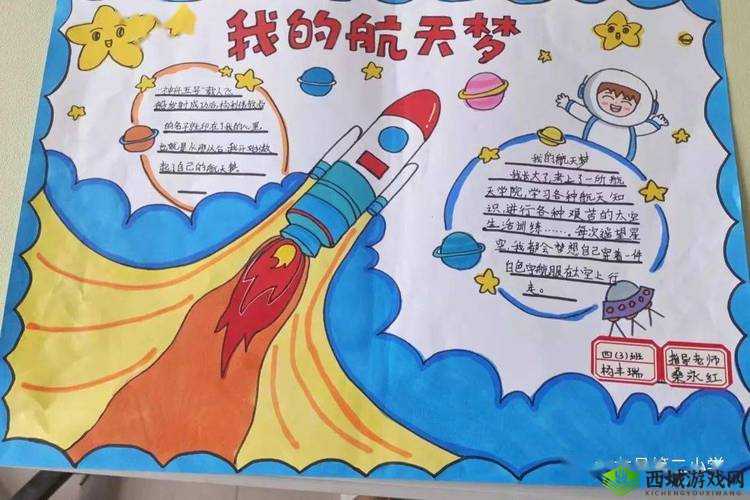 我的航天梦
"神舟五号"载人飞
船发射成功后,杨利伟叔叔
的名字就印在了我的心里,
也就是从那以后,我开始做
起了自己的航天梦。
我的航天梦
我长大了考上了一所航
天学院,学习各种航天知
识,进行各种艰苦的太空
生活训练……,每次遥望星
空,我都会梦想自己穿着一件
白色宇航服在太空上行
走。
四(3)班
杨丰瑞
指导老师
桑永红
第二小学
西域游戏网
XICHENGYOUXIWANG